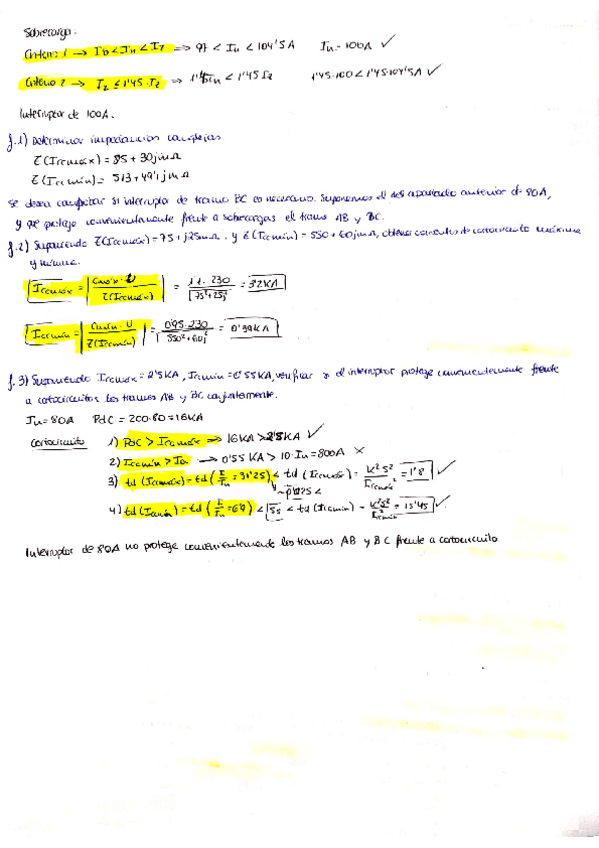 Sobrecarga:
Criterio 1 → Ib < In < Iz ⇒ 97 < In < 104'5 A    In = 100A ✓
Criterio 2 → I2 ≤ 1'45 · Iz ⇒ 1'45In < 1'45 Iz    1'45·100 < 1'45·104'5A ✓
Interruptor de 100A.
f.1) Determinar impedancias complejas
Z (Iccmáx) = 85 + 30j mΩ
Z (Iccmín) = 513 + 49'1 j mΩ
Se desea comprobar si interruptor de tramo BC es necesario. Suponemos el del apartado anterior de 80A,
y que protege convenientemente frente a sobrecargas el tramo AB y BC.
f.2) Suponiendo Z(Iccmáx) = 75 + j25mΩ y Z(Iccmín) = 550 + 60jmΩ, obtener corrientes de cortocircuito máxima
y mínima.
Iccmáx = | Cmáx · U / Z(Iccmáx) | = 1'1 · 230 / |75+25j| = 3'2KA
Iccmín = | Cmín · U / Z(Iccmín) | = 0'95 · 230 / |550+60j| = 0'39KA
f.3) Suponiendo Iccmáx = 2'5KA, Iccmín = 0'55KA, verificar si el interruptor protege convenientemente frente
a cortocircuitos los tramos AB y BC conjuntamente.
In = 80A    PdC = 200·80 = 16KA
Cortocircuito    1) PdC > Iccmáx ⇒ 16KA > 2'5KA ✓
2) Iccmín > Ia → 0'55 KA > 10·In = 800A ×
3) td (Iccmáx) = td ( I/In = 31'25 ) < td (Iccmáx) = K²S²/Iccmáx² = 1'8 ✓
4) td (Iccmín) = td ( I/In = 6'9 ) < 5s < td (Iccmín) = K²S²/Iccmín² = 13'45 ✓
Interruptor de 80A no protege convenientemente los tramos AB y BC frente a cortocircuito